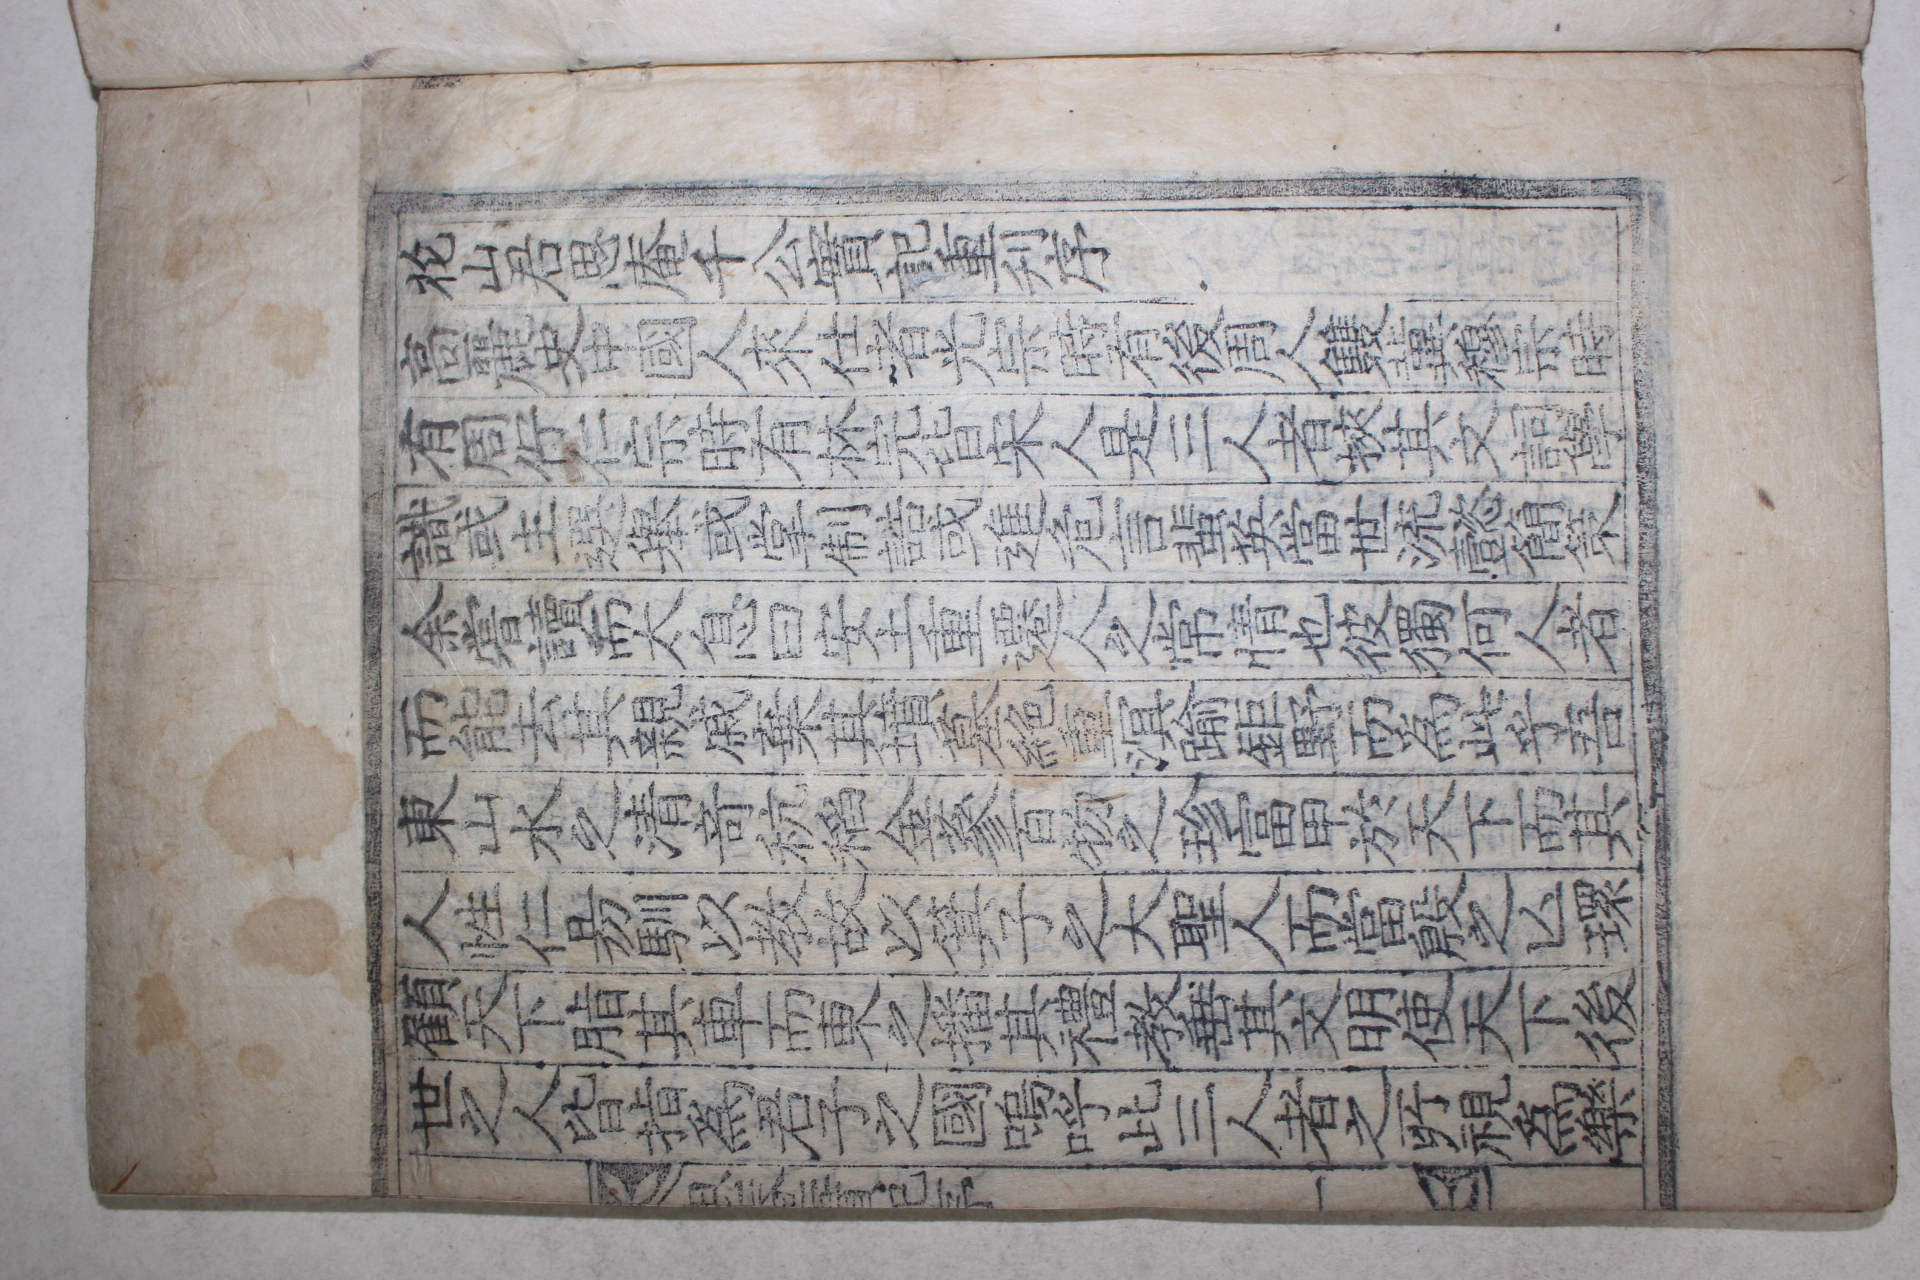 花山君思庵千公實記重刊序
高麗史中國人來仕者光宗時有後周人雙冀穆宗時
有周佇仁宗時有林完皆宋人是三人者挾其文詞學
識或主選舉或掌制誥或進危言蜚英當世流懿簡策
余嘗讀而太息曰安土重遷人之常情也彼獨何人者
而能去其親戚棄其墳墓絶重溟踰鉅野而為此乎吾
東山水之清竒秔稻金蔘百物之珍富甲於天下而其
人性仁易馴以教故以箕子之大聖人而當殷之亾環
顧天下脂其車而東之播其禮教垂其文明使天下後
世之人皆指為君子之國嗚呼此三人者之所視為樂
思菴實記序
一